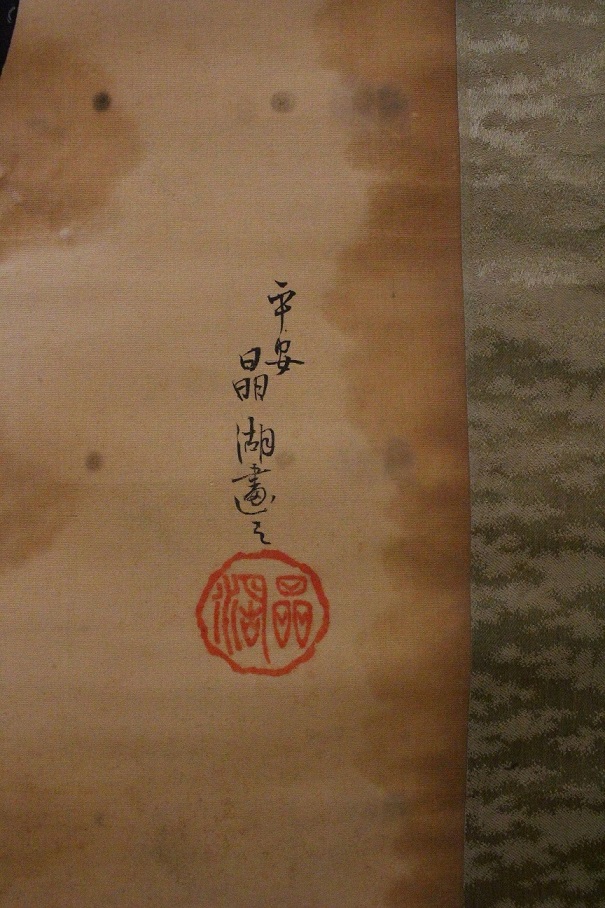 平安
晶湖畫之
晶湖